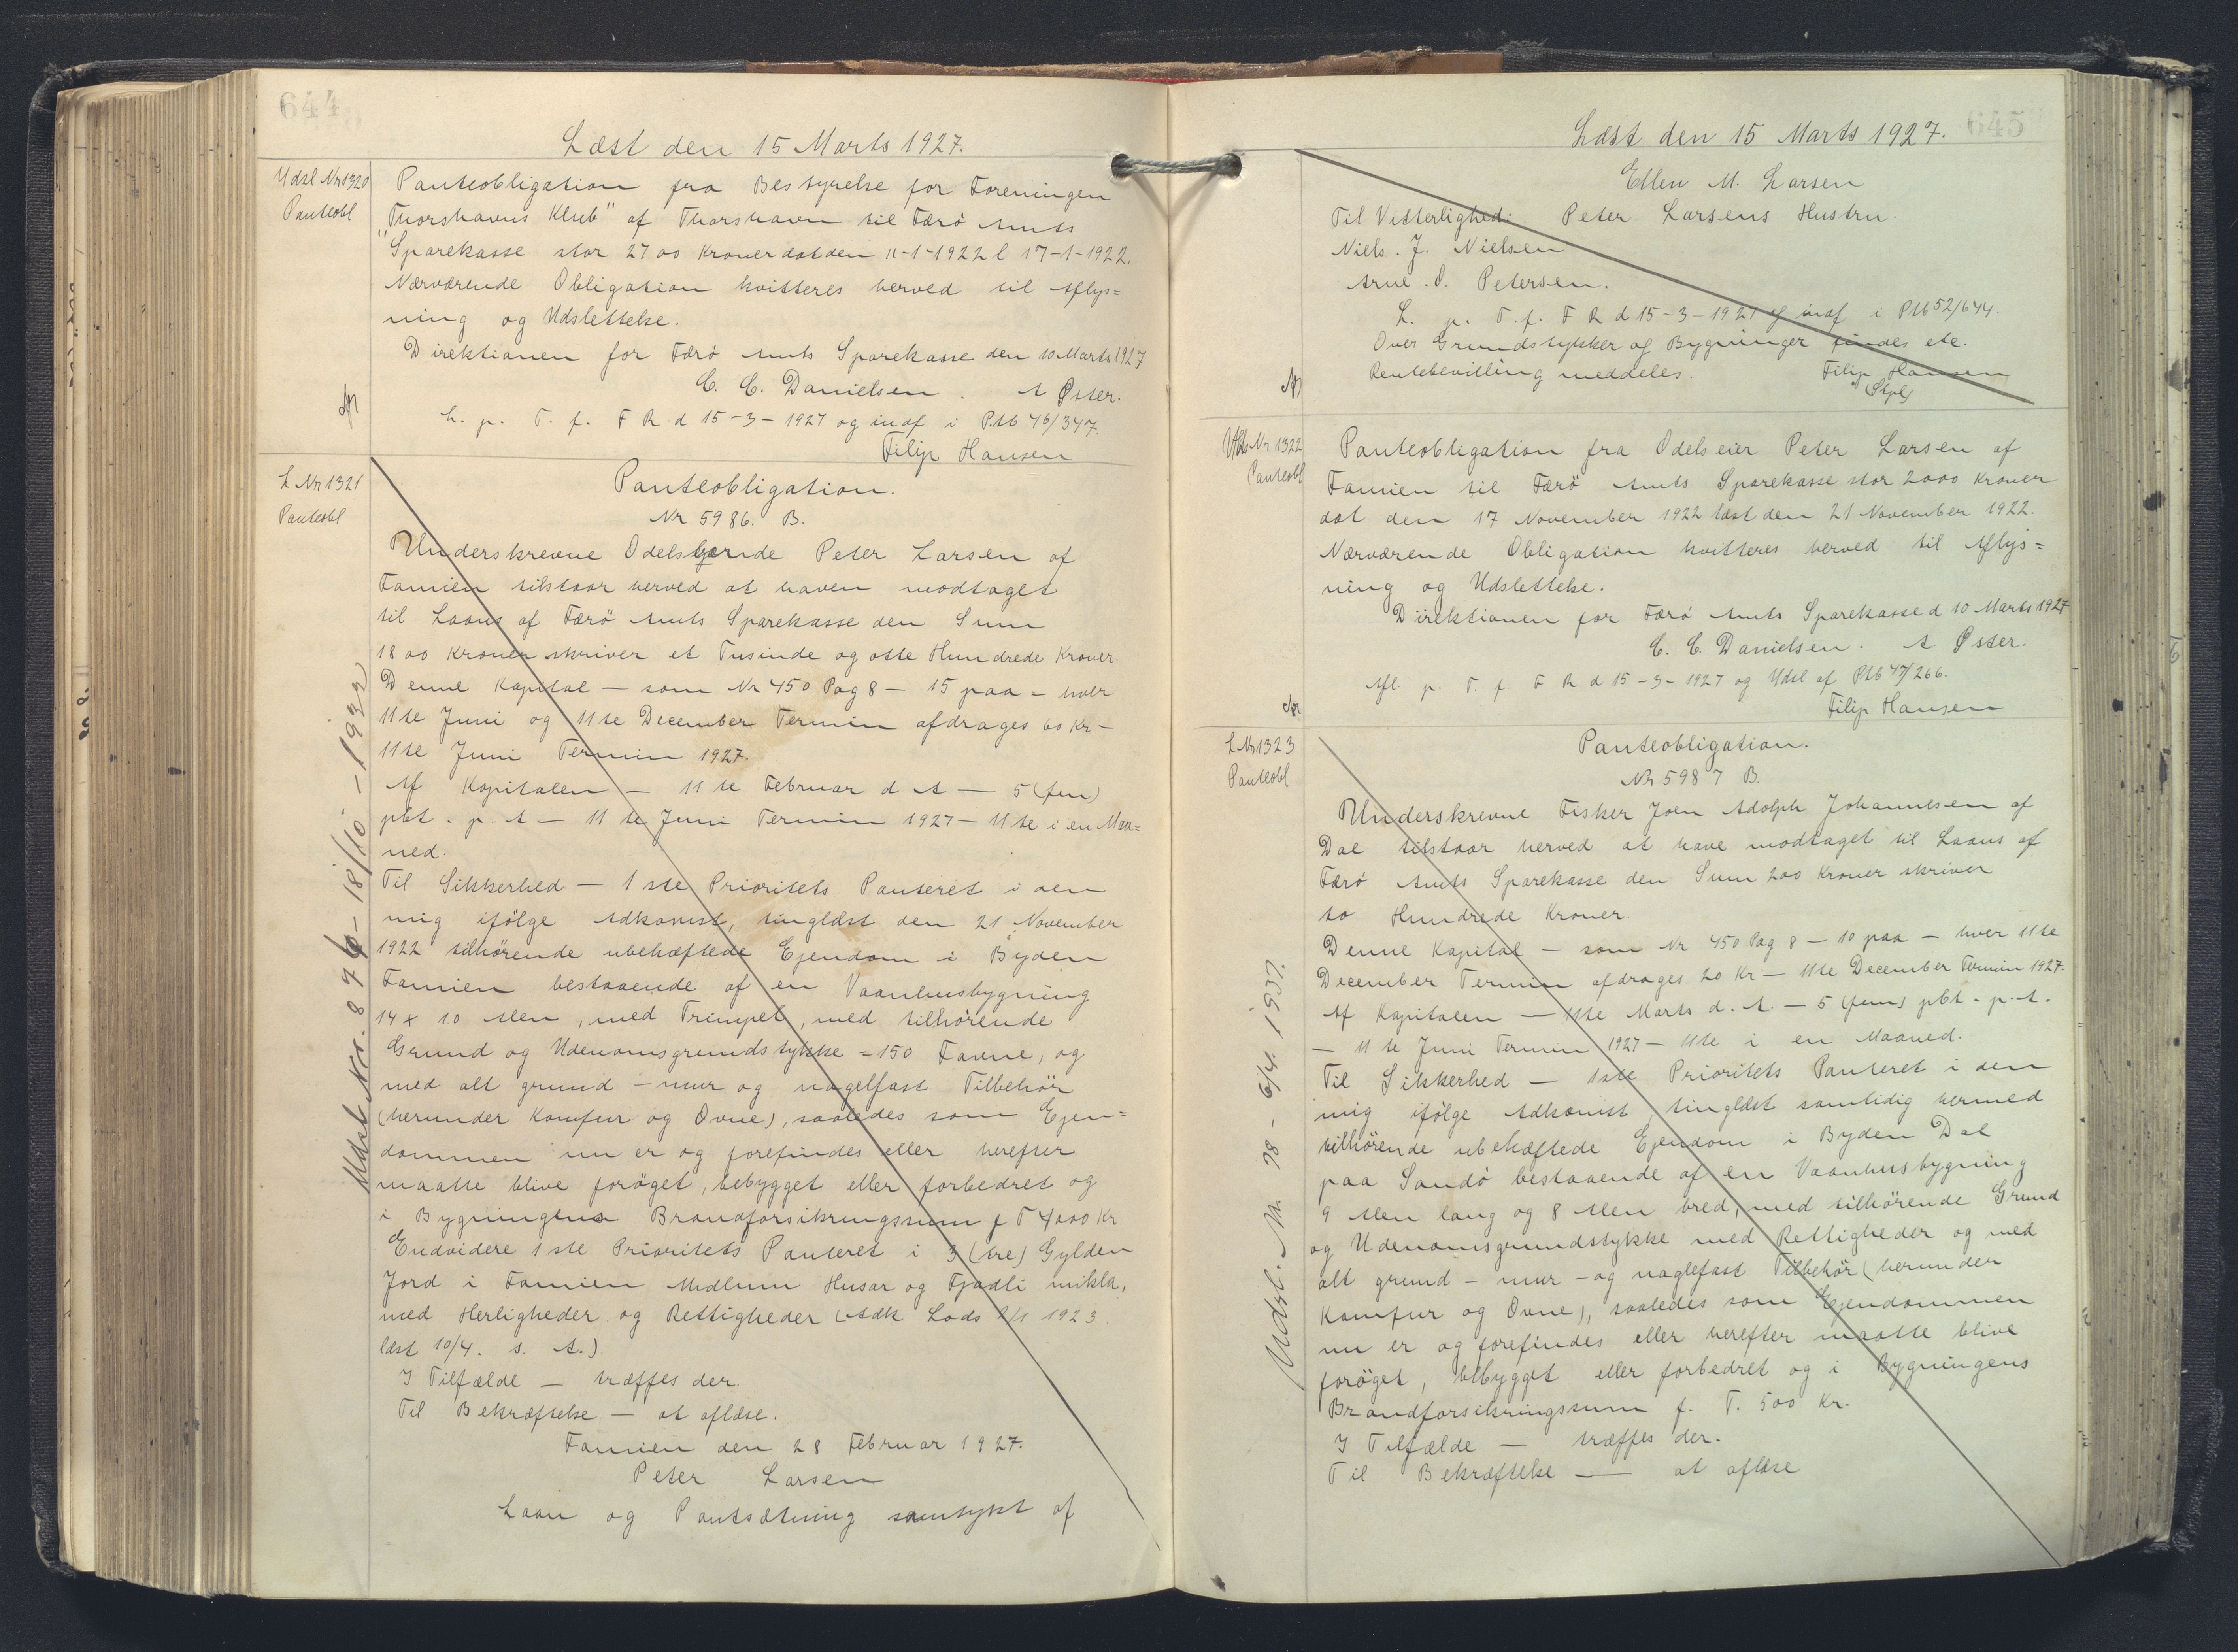 644
Læst den 15 Marts 1927.
Udsl Nr 1320
Panteobl
Panteobligation fra Bestyrelse for Foreningen
"Thorshavns Klub" af Thorshavn til Færø Amts
Sparekasse stor 2700 Kroner dat den 11-1-1922 l 17-1-1922.
Nærværende Obligation kvitteres herved til Aflys=
ning og Udslettelse.
Direktionen for Færø Amts Sparekasse den 10 Marts 1927
C. C. Danielsen. A Øster.
L. p. T. f. F R d 15-3-1927 og indf i Ptb 46/347.
Filip Hansen
L Nr 1321
Panteobl
Panteobligation.
Nr 5986. B.
Underskrevne Odelsbonde Peter Larsen af
Famien tilstaar herved at haven modtaget
til Laans af Færø Amts Sparekasse den Sum
1800 Kroner skriver et Tusinde og otte Hundrede Kroner.
Denne Kapital – som Nr 450 Pag 8 – 15 paa – hver
11te Juni og 11te December Termin afdrages 60 Kr –
11te Juni Termin 1927.
Af Kapitalen – 11te Februar d A – 5 (fem)
pbt. p. A – 11te Juni Termin 1927 – 11te i en Maa=
ned.
Til Sikkerhed – 1ste Prioritets Panteret i den
mig ifølge Adkomst, tinglæst den 21 November
1922 tilhørende ubehæftede Ejendom i Byden
Famien bestaaende af en Vaanhusbygning
14 x 10 Alen, med Trempel, med tilhørende
Grund og Udenomsgrundstykke = 150 Favne, og
med alt grund – mur og nagelfast Tilbehør
(herunder Komfur og Ovne), saaledes som Ejen=
dommen nu er og forefindes eller herefter
maatte blive forøget, bebygget eller forbedret og
i Bygningens Brandforsikringssum f T 4000 Kr
Endvidere 1ste Prioritets Panteret i 3 (tre) Gylden
Jord i Famien Midlum Husar og Fjadli mikla,
med Herligheder og Rettigheder (Adk Lods 1923
læst 10/4. s. A.)
I Tilfælde – træffes der.
Til Bekræftelse – at aflæse.
Famien den 28 Februar 1927.
Peter Larsen
Laan og Pantsætning samtykt af
Udsl. Nr. 876 – 18/10 – 1932
645
Læst den 15 Marts 1927.
Ellen M. Larsen
Til Vitterlighed: Peter Larsens Hustru.
Niels. J. Nielsen
Arne. O. Petersen.
L. p. T. f. F R d 15-3-1927 og indf i Ptb 52/644.
Over Grundstykker og Bygninger findes ete.
Rentebevilling meddeles. Filip Hansen
Udsl Nr 1322
Panteobl
Panteobligation fra Odelseier Peter Larsen af
Famien til Færø Amts Sparekasse stor 2000 Kroner
dat den 17 November 1922 læst den 21 November 1922.
Nærværende Obligation kvitteres herved til Aflys=
ning og Udslettelse.
Direktionen for Færø Amts Sparekasse d 10 Marts 1927
C. C. Danielsen. A Øster.
Afl. p. T. f F R d 15-3-1927 og Udsl af Ptb 47/266.
Filip Hansen
L Nr 1323
Panteobl
Panteobligation.
Nr 5987 B.
Underskrevne Fisker Joen Adolph Johannesen af
Dal tilstaar herved at have modtaget til Laans af
Færø Amts Sparekasse den Sum 200 Kroner skriver
to Hundrede Kroner.
Denne Kapital – som Nr 450 Pag 8 – 10 paa – hver 11te
December Termin afdrages 20 Kr – 11te December Termin 1927.
Af Kapitalen – 11te Marts d. A. – 5 (fem) pbt. p. A.
– 11te Juni Termin 1927 – 11te i en Maaned.
Til Sikkerhed – 1ste Prioritets Panteret i den
mig ifølge Adkomst tinglæst samtidig hermed
tilhørende ubehæftede Ejendom i Byden Dal
paa Sandø bestaaende af en Vaanhusbygning
9 Alen lang og 8 Alen bred, med tilhørende Grund
og Udenomsgrundstykke med Rettigheder og med
alt grund – mur – og naglefast Tilbehør (herunder
Komfur og Ovne), saaledes som Ejendommen
nu er og forefindes eller herefter maatte blive
forøget, bebygget eller forbedret og i Bygningens
Brandforsikringssum f. T. 500 Kr.
I Tilfælde – træffes der.
Til Bekræftelse – at aflæse
Udsl. Nr. 78 – 6/4. 1937.